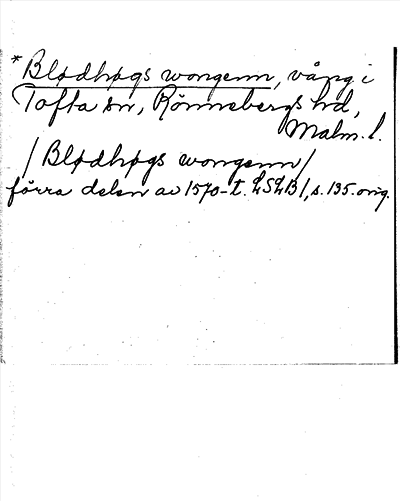 *Blødhøgs wongenn, vång i
Tofta sn, Rönnebergs hd,
Malm. l.
/Blødhøgs wongenn/
förra delen av 1570-t. LSLB1, s. 135. orig.